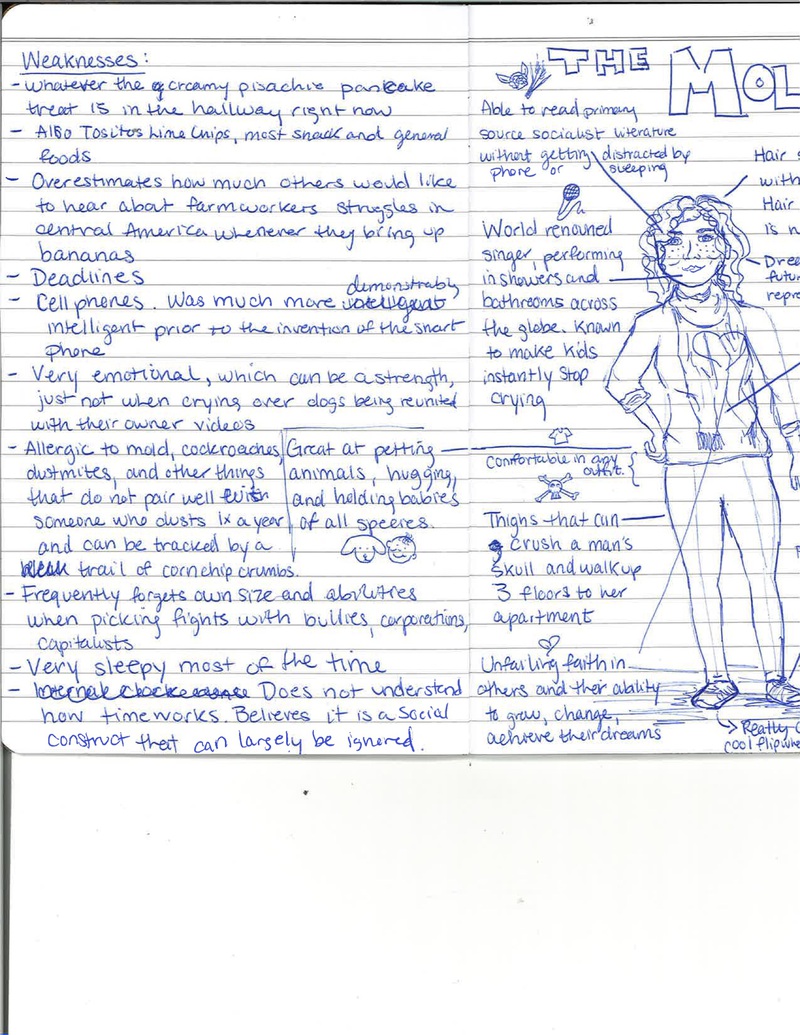 Weaknesses:
- whatever the creamy pisachio pancake
treat is in the hallway right now
- Also Tositos Lime Chips, most snack and general
foods
- Overestimates how much others would like
to hear about farmworkers struggles in
central America whenever they bring up
bananas
- Deadlines
- Cell phones. Was much more demonstrably
intelligent prior to the invention of the smart
phone
- Very emotional, which can be a strength,
just not when crying over dogs being reunited
with their owner videos
- Allergic to mold, cockroaches,
dustmites, and other things
that do not pair well with
someone who dusts 1x a year
and can be tracked by a
trail of corn chip crumbs.
Great at petting
animals, hugging,
and holding babies
of all species.
- Frequently forgets own size and abilities
when picking fights with bullies, corporations,
capitalists
- Very sleepy most of the time
- Does not understand
how time works. Believes it is a social
construct that can largely be ignored.
THE MOL
Able to read primary
source socialist literature
without getting distracted by
phone or sleeping
World renouned
singer, performing
in showers and
bathrooms across
the globe. Known
to make kids
instantly stop
crying
Comfortable in any
outfit.
Thighs that can
crush a man's
skull and walk up
3 floors to her
apartment
Unfailing faith in
others and their ability
to grow, change,
achieve their dreams
Hair
with
Hair
is n
Drea
futur
repre
Really c
cool flip whe